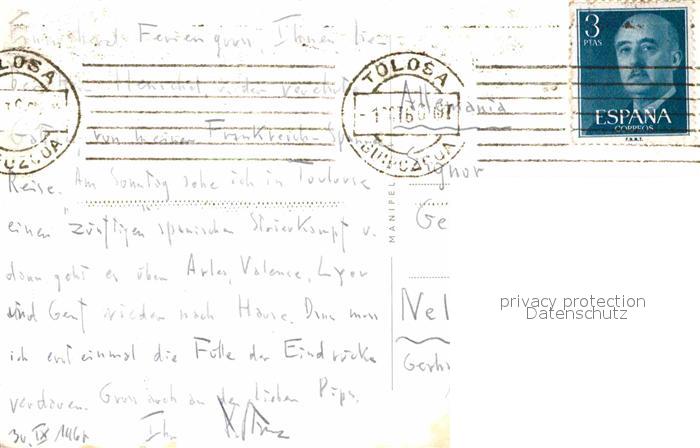 Ferien gruss, Ihnen, lie-
Henschel, u. der verehrt
von meiner Frankreich-Spanien
Reise. Am Sonntag sehe ich in Toulouse
einen "zünftigen" spanischen Stierkampf u.
dann geht es über Arles, Valence, Lyon
und Genf wieder nach Hause. Dann muss
ich erst einmal die Fülle der Eindrücke
verdauen. Gruss auch an den lieben
30. IX Ihr
TOLOSA
GUIPUZCOA
TOLOSA
GUIPUZCOA
3
PTAS
ESPAÑA
CORREOS
F.N.M.T.
Allemania
MANIPEL
Ge
Nel
privacy protection
Datenschutz